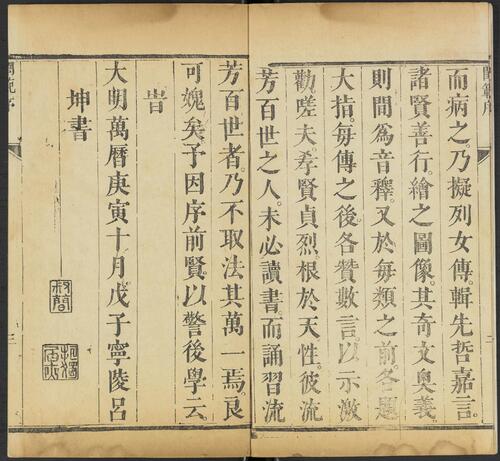 閨範序
而病之。乃擬列女傳。輯先哲嘉言。
諸賢善行。繪之圖像。其奇文奧義。
則間為音釋。又於每類之前。各題
大指。每傳之後。各贊數言。以示激
勸。嗟夫。孝賢貞烈。根於天性。彼流
芳百世之人。未必讀書。而誦習流
芳百世者。乃不取法其萬一焉。良
可媿矣。予因序前賢。以警後學云。
旹
大明萬曆庚寅十月戊子寧陵呂
坤書
三